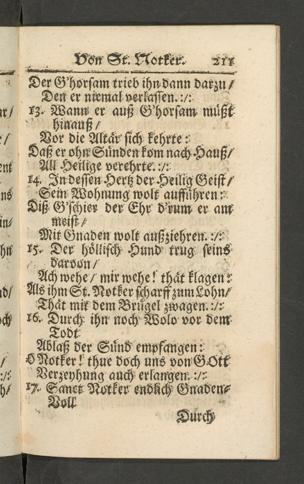 Von St. Notker. 211
Der G'horsam trieb ihn dann darzu/
Den er niemal verlassen. :/:
13. Wann er auß G'horsam müßt
hinauß/
Vor die Altär sich kehrte:
Daß er ohn Sünden kom nach Hauß/
All Heilige verehrte. :/:
14. In dessen Hertz der Heilig Geist/
Sein Wohnung wolt aufführen:
Diß G'schier der Ehr d'rum er am
meist/
Mit Gnaden wolt außziehren. :/:
15. Der höllisch Hund trug seins
darvon/
Ach wehe/ mir wehe! thät klagen:
Als ihn St. Notker scharff zum Lohn/
Thät mit dem Brügel zwagen. :/:
16. Durch ihn noch Wolo vor dem
Todt
Ablaß der Sünd empfangen:
O Notker! thue doch uns von GOtt
Verzeyhung auch erlangen. :/:
17. Sanct Notker endlich Gnaden-
Voll
Durch